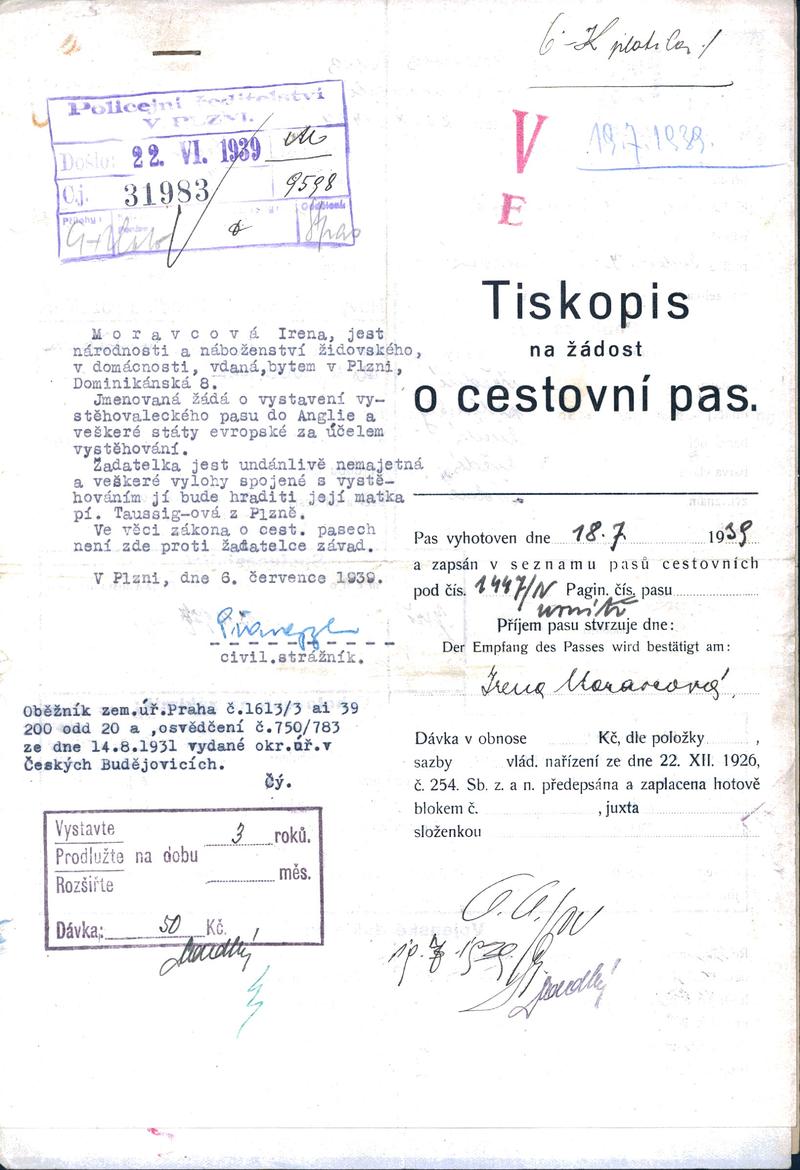 Policejní ředitelství
V PLZNI.
Došlo: 22. VI. 1939
Čj. 31983 9598
Přílohy:
M o r a v c o v á Irena, jest
národnosti a náboženství židovského,
v domácnosti, vdaná,bytem v Plzni,
Dominikánská 8.
Jmenovaná žádá o vystavení vy-
stěhovaleckého pasu do Anglie a
veškeré státy evropské za účelem
vystěhování.
Žadatelka jest undánlivě nemajetná
a veškeré vylohy spojené s vystě-
hováním jí bude hraditi její matka
pí. Taussig-ová z Plzně.
Ve věci zákona o cest. pasech
není zde proti žadatelce závad.
V Plzni, dne 6. července 1939.
civil.strážník.
Oběžník zem.úř.Praha č.1613/3 ai 39
200 odd 20 a ,osvědčení č.750/783
ze dne 14.8.1931 vydané okr.úř.v
Českých Budějovicích.
Čý.
Vystavte
Prodlužte na dobu 3 roků.
Rozšiřte měs.
Dávka: 50 Kč.
6 K
V
E
19.7.1939.
Tiskopis
na žádost
o cestovní pas.
Pas vyhotoven dne 18.7 1939
a zapsán v seznamu pasů cestovních
pod čís. 1447/IV Pagin. čís. pasu
uvnitř
Příjem pasu stvrzuje dne:
Der Empfang des Passes wird bestätigt am:
Irena Moravcová
Dávka v obnose Kč, dle položky ,
sazby vlád. nařízení ze dne 22. XII. 1926,
č. 254. Sb. z. a n. předepsána a zaplacena hotově
blokem č. , juxta
složenkou